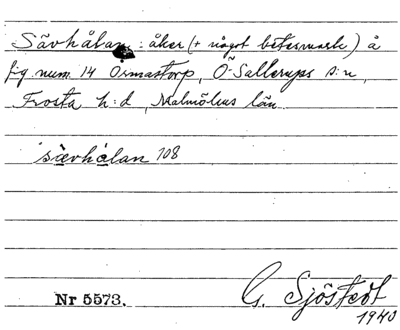 Sävhålan: åker (+ något betesmark) å
fig. num. 14 Ormastorp, Ö. Sallerups s:n,
Frosta h:d, Malmöhus län.
sävhålan 108
Nr 5573.
G. Sjöstedt
1940